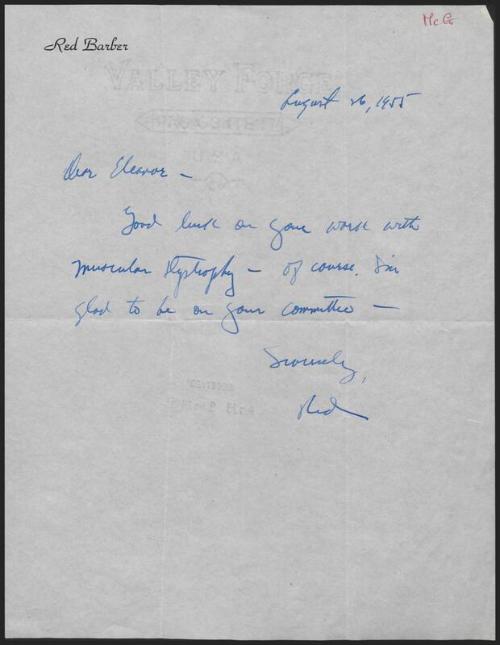 McG
Red Barber
VALLEY FORGE
August 26, 1955
Dear Eleanor –
Good luck on your work with
Muscular Dystrophy – of course. I'm
glad to be on your committee –
Sincerely,
Red
RECEIVED